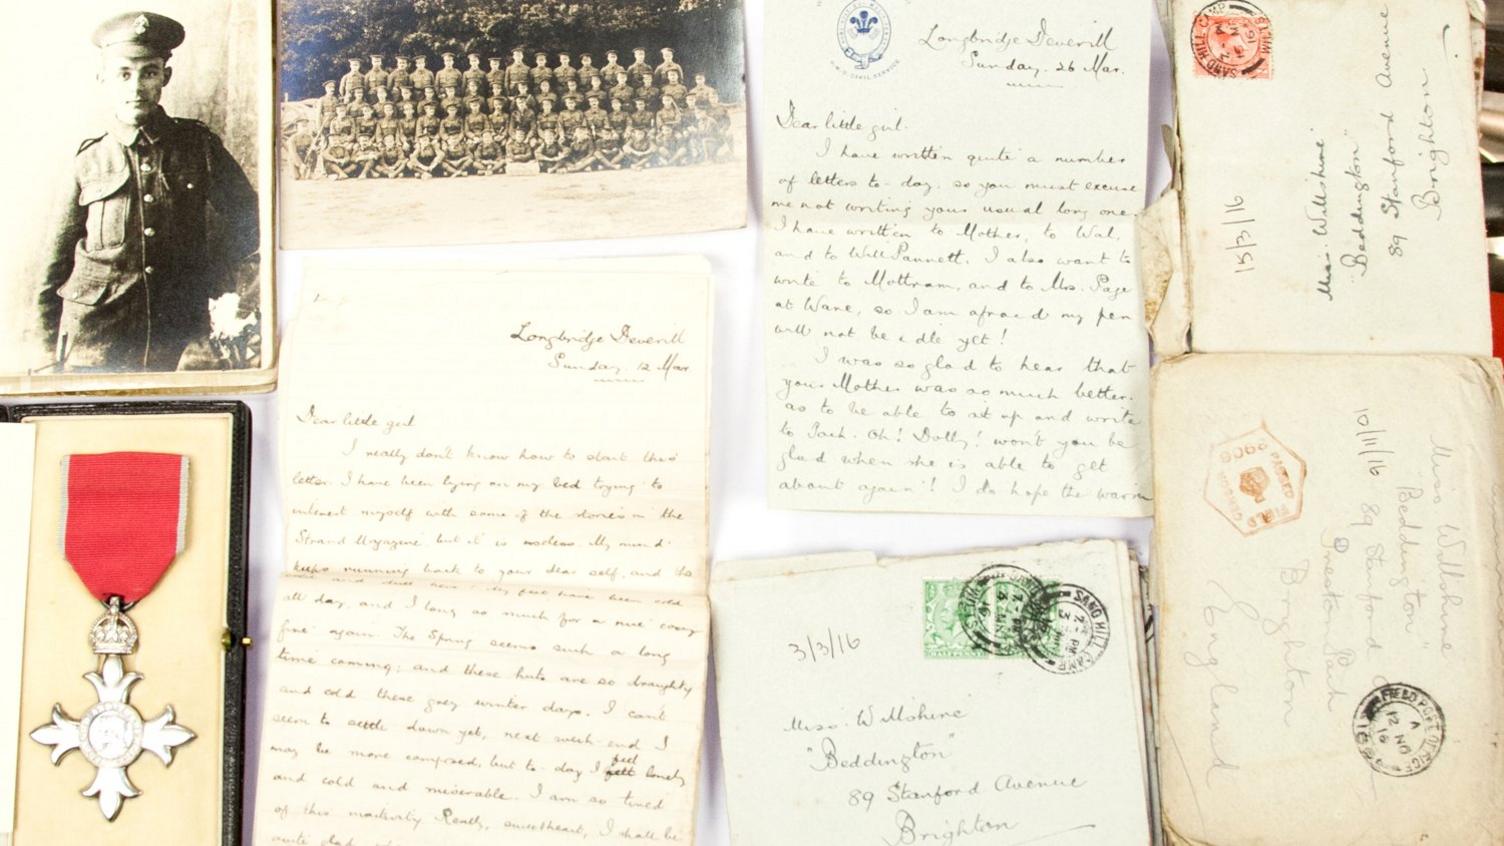 Longbridge Deverill
Sunday. 26 Mar.
Dear little girl.
I have written quite a number
of letters to-day, so you must excuse
me not writing your usual long one.
I have written to Mother, to Wal,
and to Will Pannett. I also want to
write to Mottram, and to Mrs. Page
at Ware, so I am afraid my pen
will not be idle yet!
I was so glad to hear that
your Mother was so much better.
as to be able to sit up and write
to Jack. Oh! Dolly! won't you be
glad when she is able to get
about again! I do hope the warm
Longbridge Deverill
Sunday. 12 Mar
Dear little girl
I really don't know how to start this
letter. I have been lying on my bed trying to
interest myself with some of the stories in the
Strand Magazine, but it is useless. My mind
keeps running back to your dear self, and
have been cold
all day, and I long so much for a nice cosy
fire again. The Spring seems such a long
time coming; and these huts are so draughty
and cold these grey winter days. I can't
seem to settle down yet, next week-end I
may be more composed, but to-day I feel lonely
and cold and miserable. I am so tired
of this inactivity Really, sweetheart, I shall be
quite glad
SAND HILL CAMP
WILTS
15/3/16
Miss. Willshire
"Beddington"
89 Stanford Avenue
Brighton
3/3/16
SAND HILL CAMP
Miss. Willshire
"Beddington"
89 Stanford Avenue
Brighton
10/11/16
PASSED
FIELD CENSOR
3906
Miss Willshire
"Beddington"
89 Stanford
Preston Park
Brighton
England
FIELD POST OFFICE
A
12 NO
16